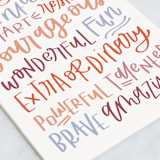 SMART
courageous
WONDERFUL FUN
EXTRAORDINARY
POWERFUL talented
BRAVE amazing